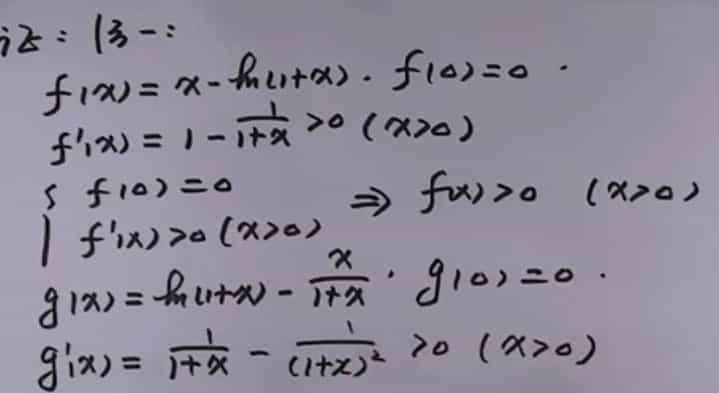 证：法一：
f(x) = x - ln(1+x) . f(0) = 0 .
f'(x) = 1 - \frac{1}{1+x} > 0 (x>0)
{ f(0) = 0 ⇒ f(x) > 0 (x>0)
f'(x) > 0 (x>0)
g(x) = ln(1+x) - \frac{x}{1+x} . g(0) = 0 .
g'(x) = \frac{1}{1+x} - \frac{1}{(1+x)^2} > 0 (x>0)